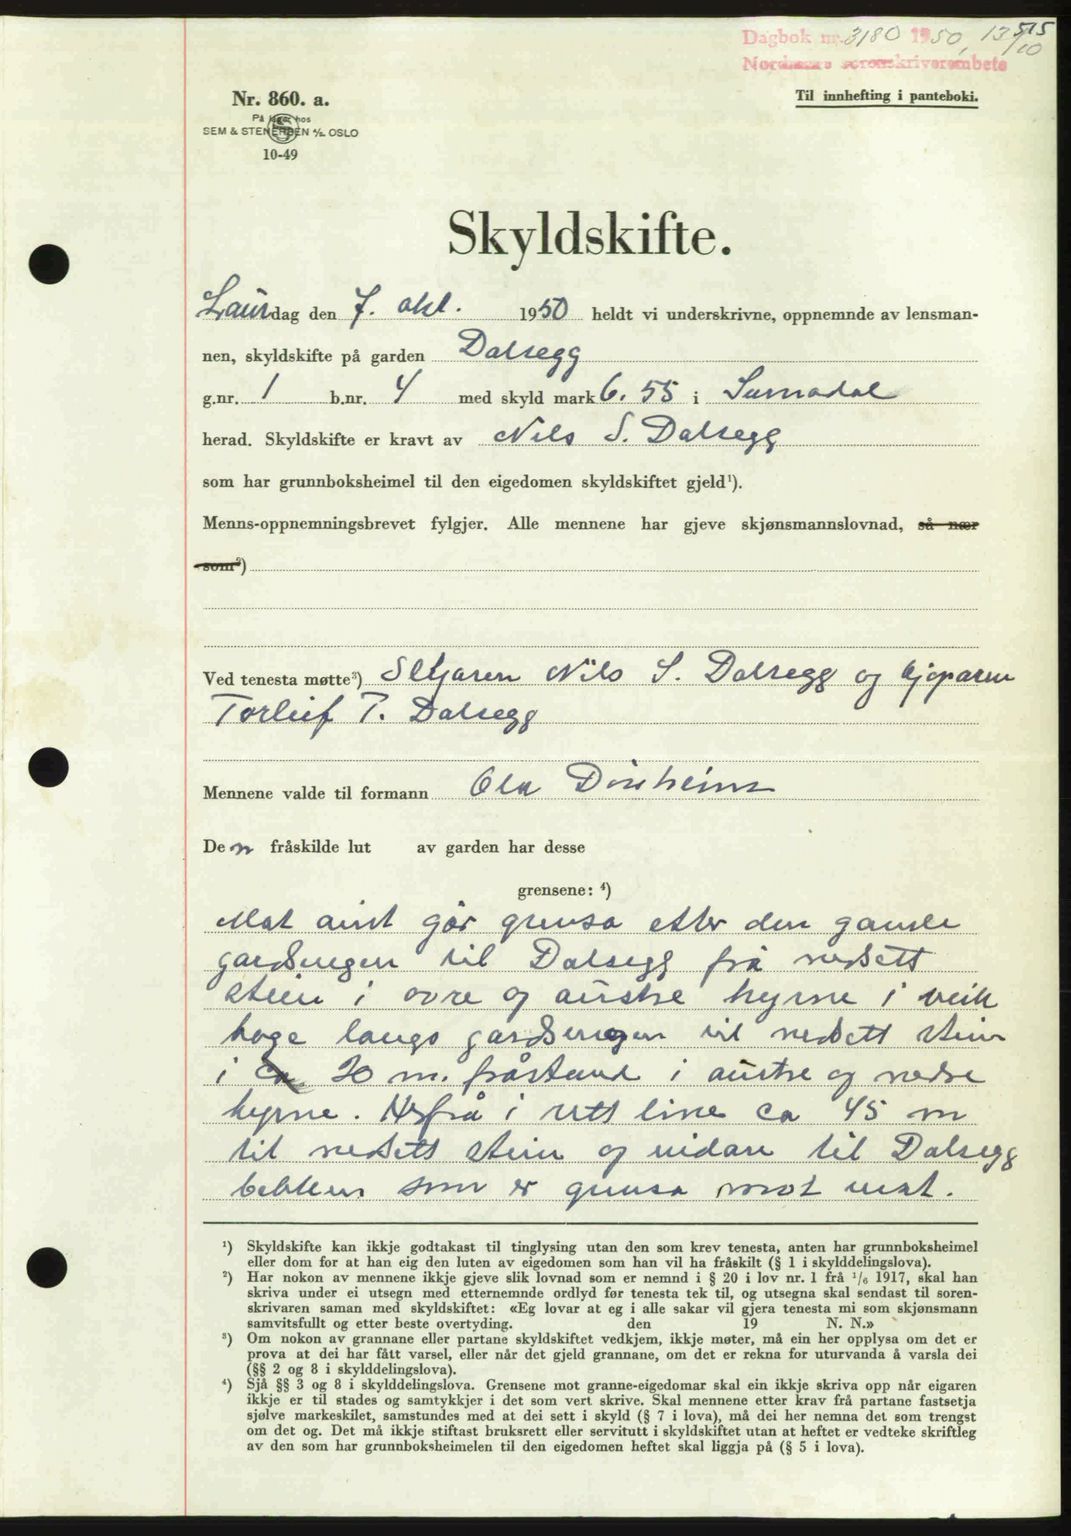 515
Dagbok nr. 3180 1950, 13/10
Nordmøre sorenskriverembete
Nr. 860. a.
Til innhefting i panteboki.
På lager hos
SEM & STENERSEN A/S OSLO
10-49
Skyldskifte.
Laurdag den 7. okt. 1950 heldt vi underskrivne, oppnemnde av lensman-
nen, skyldskifte på garden Dalsegg
g.nr. 1 b.nr. 4 med skyld mark 6.55 i Surnadal
herad. Skyldskifte er kravt av Nils S. Dalsegg
som har grunnboksheimel til den eigedomen skyldskiftet gjeld¹).
Menns-oppnemningsbrevet fylgjer. Alle mennene har gjeve skjønsmannslovnad, så nær
som²)
Ved tenesta møtte³) Seljaren Nils S. Dalsegg og kjøparen
Torleif T. Dalsegg
Mennene valde til formann Ola Dønheim
Den fråskilde lut av garden har desse
grensene: ⁴)
Mot aust går grensa etter den gamle
gardsvegen til Dalsegg frå nedsett
stein i øvre og austre hyrne i
hage langs gardsvegen til nedsett stein
i ca. 20 m. fråstand i austre og nedre
hyrne. Herfrå i rett line ca 45 m
til nedsett stein og vidare til Dalsegg
bekken som er grensa mot vest.
¹) Skyldskifte kan ikkje godtakast til tinglysing utan den som krev tenesta, anten har grunnboksheimel
eller dom for at han eig den luten av eigedomen som han vil ha fråskilt (§ 1 i skylddelingslova).
²) Har nokon av mennene ikkje gjeve slik lovnad som er nemnd i § 20 i lov nr. 1 frå ¹/₆ 1917, skal han
skriva under ei utsegn med etternemnde ordlyd før tenesta tek til, og utsegna skal sendast til soren-
skrivaren saman med skyldskiftet: «Eg lovar at eg i alle sakar vil gjera tenesta mi som skjønsmann
samvitsfullt og etter beste overtyding. den 19 N. N.»
³) Om nokon av grannane eller partane skyldskiftet vedkjem, ikkje møter, må ein her opplysa om det er
prova at dei har fått varsel, eller når det gjeld grannane, om det er rekna for uturvanda å varsla dei
(§§ 2 og 8 i skylddelingslova).
⁴) Sjå §§ 3 og 8 i skylddelingslova. Grensene mot granne-eigedomar skal ein ikkje skriva opp når eigaren
ikkje er til stades og samtykkjer i det som vert skrive. Skal mennene etter krav frå partane fastsetja
sjølve markeskilet, samstundes med at dei sett i skyld (§ 7 i lova), må dei her nemna det som trengst
om det og. Det må ikkje stiftast bruksrett eller servitutt i skyldskiftet utan at heftet er vedteke skriftleg
av den som har grunnboksheimelen til den eigedomen heftet skal liggja på (§ 5 i lova).